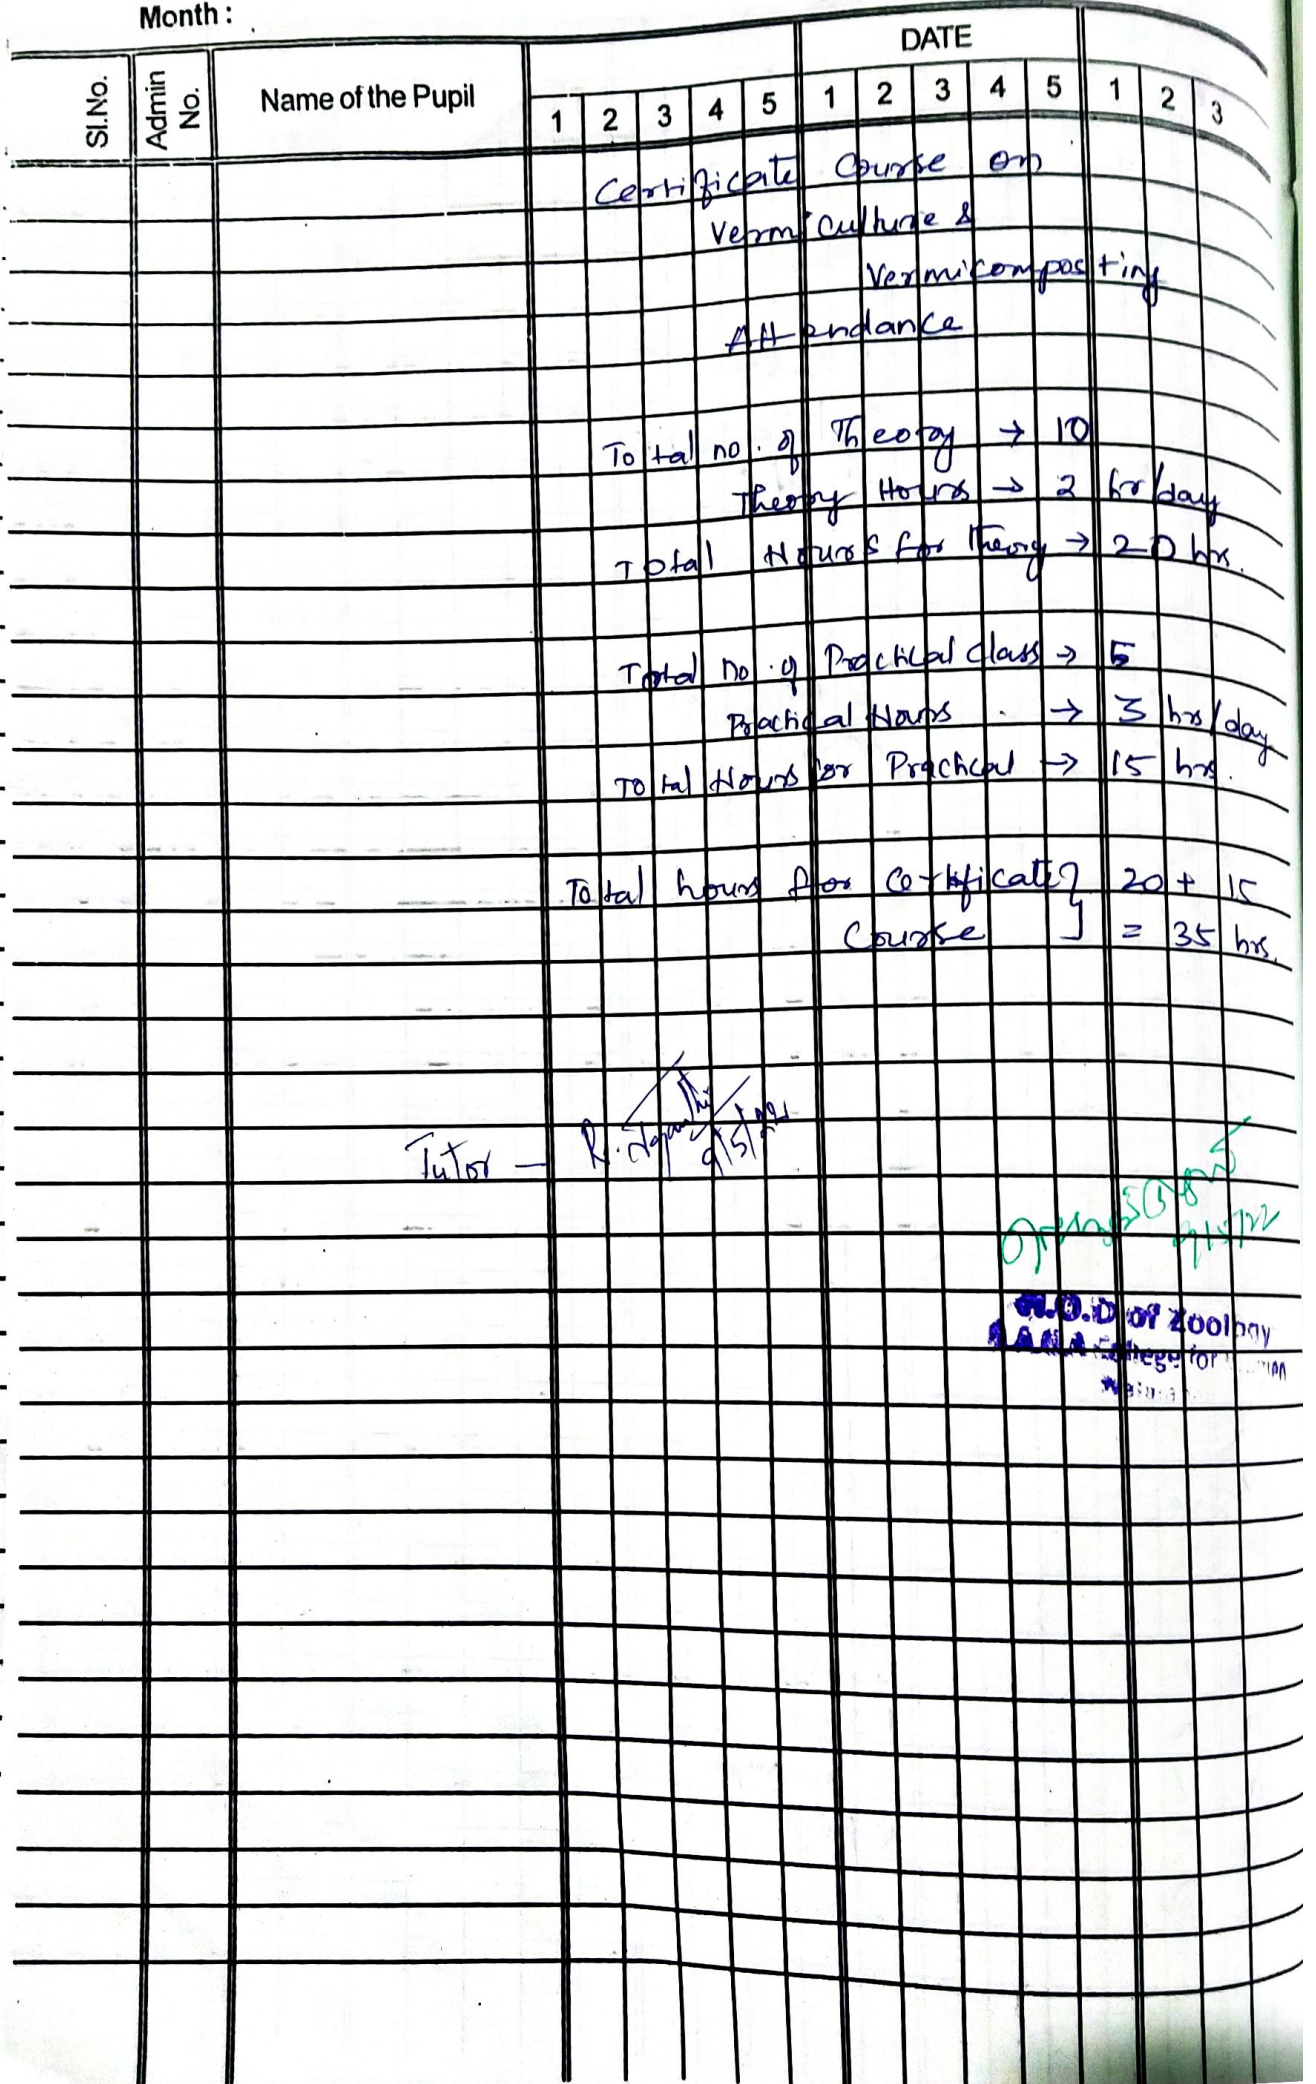 Month :
Sl.No. Admin No. Name of the Pupil DATE
1 2 3 4 5 1 2 3 4 5 1 2 3
Certificate Course on
Vermiculture &
Vermicomposting
Attendance
Total no. of Theory → 10
Theory Hours → 2 hr/day
Total Hours for Theory → 20 hrs.
Total no. of Practical Class → 5
Practical Hours → 3 hrs/day
Total Hours for Practical → 15 hrs.
Total hours for Certificate } 20 + 15
Course = 35 hrs.
Tutor – R. 9/5/22
9/5/22
H.O.D of Zoology
College for